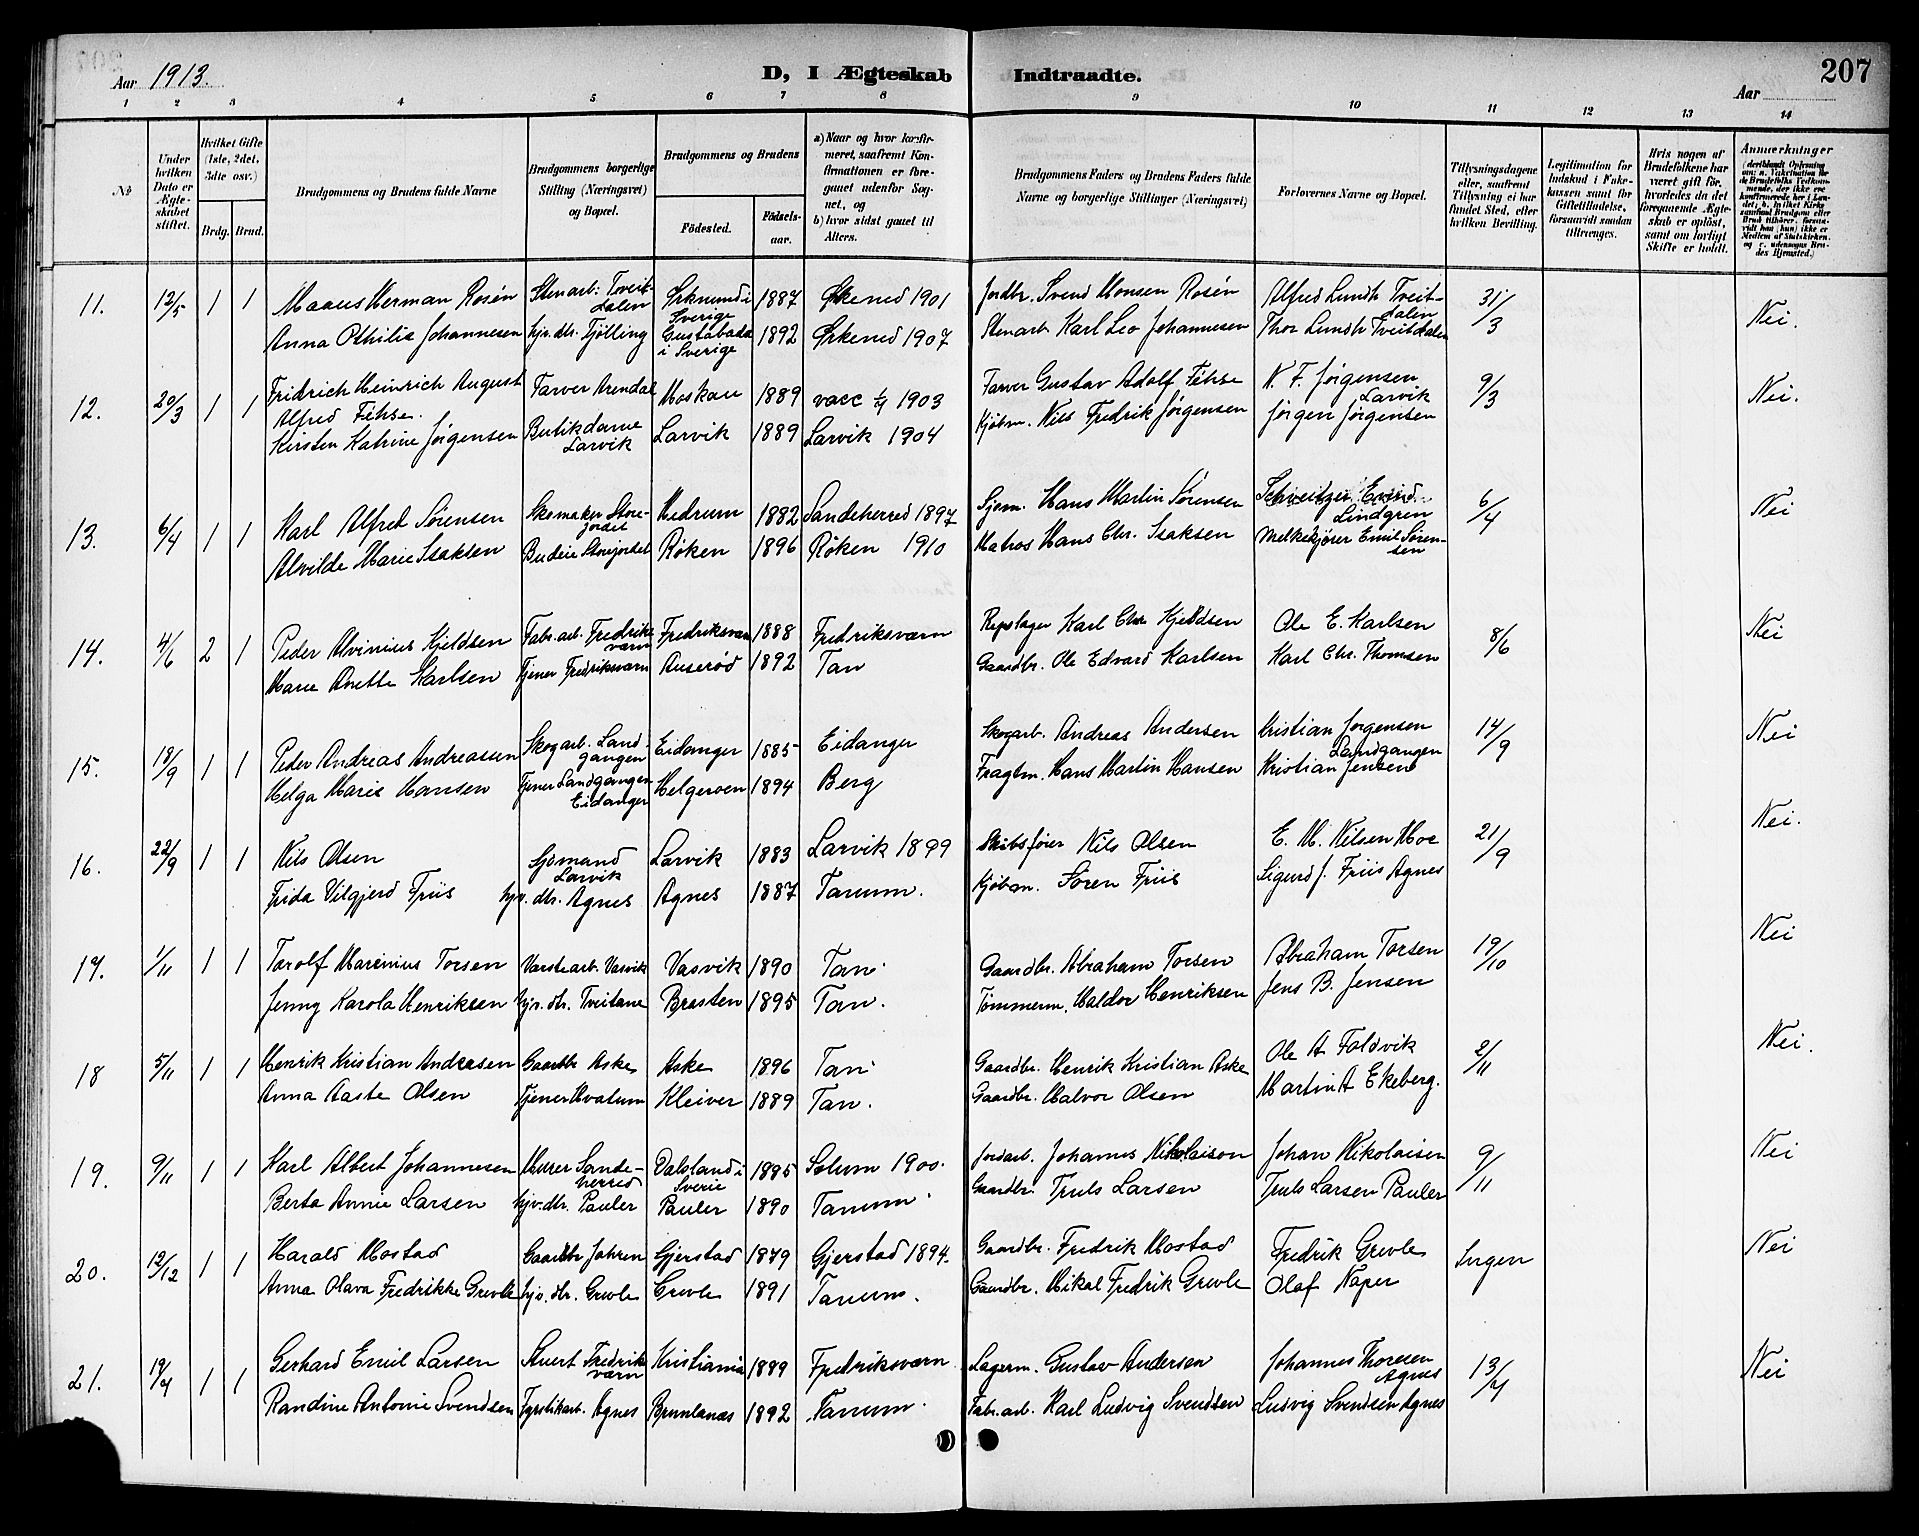 207
Aar 1913.
D, I Ægteskab Indtraadte.
Aar
1 2 3 4 5 6 7 8 9 10 11 12 13 14
№
Under hvilken Dato er Ægteskabet stiftet.
Hvilket Gifte (1ste, 2det, 3die osv.)
Brdg. Brud.
Brudgommens og Brudens fulde Navne
Brudgommens borgerlige Stilling (Næringsvei) og Bopæl.
Brudgommens og Brudens
Fødested. Fødselsaar.
a) Naar og hvor konfirmeret, saafremt Konfirmationen er foregaaet udenfor Sognet, og
b) hvor sidst gaaet til Alters.
Brudgommens Faders og Brudens Faders fulde Navne og borgerlige Stillinger (Næringsvei)
Forlovernes Navne og Bopæl.
Tillysningsdagene eller, saafremt Tillysning ei har fundet Sted, efter hvilken Bevilling.
Legitimation for Indskud i Enkekassen samt for Giftetilladelse, forsaavidt saadan tiltrænges.
Hvis nogen af Brudefolkene har været gift før, hvorledes da det foregaaende Ægteskab er opløst, samt om lovligt Skifte er holdt.
Anmærkninger
11. 12/5 1 1 Maaus Herman Rosén Stenarb. Tveitdalen Örkenund i Sverige 1887 Ørkened 1901 Jordbr. Svend Monsen Rosén Alfred Lundh Tveitdalen 31/3 Nei.
Anna Othilia Johannesen hjv. dtr. Tjølling i Sverige 1892 Ørkened 1907 Stenarb. Karl Leo Johannesen Thor Lundh Tveitdalen
12. 20/3 1 1 Fridrich Heinrich August Alfred Fehse. Farver Arendal Moskau 1889 vacc 1903 Farver Gustav Adolf Fehse N. F. Jørgensen Larvik 9/3 Nei.
Kirsten Katrine Jørgensen Butikdame Larvik Larvik 1889 Larvik 1904 Kjøbm. Nils Fredrik Jørgensen Jørgen Jørgensen
13. 6/4 1 1 Karl Alfred Sørensen Skomaker Storejordet Hedrum 1882 Sandeherred 1897 Sjøm. Hans Martin Sørensen Schveitzer Lindgren 6/4 Nei
Alvilde Marie Isaksen Budeie Storejordet Røken 1896 Røken 1910 Matros Hans Chr. Isaksen Melkekjører Emil Sørensen
14. 4/6 2 1 Peder Alvinius Kjeldsen Fabr. arb. Fredriksværn Fredriksværn 1888 Fredriksværn Repslager Karl Chr Kjeldsen Ole E. Karlsen 8/6 Nei
Marie Anette Karlsen Tjener Fredriksværn Auserød 1892 Tan Gaardbr. Ole Edvard Karlsen Karl Chr. Thomsen
15. 18/9 1 1 Peder Andreas Andreassen Skogarb. Landgangen Eidanger 1885 Eidanger Skogarb. Andreas Andersen Kristian Jørgensen Landgangen 14/9 Nei
Helga Marie Hansen Tjener Landgangen Eidanger Helgeroen 1894 Berg Fragtm. Hans Martin Hansen Kristian Jensen
16. 22/9 1 1 Nils Olsen Sjømand Larvik Larvik 1883 Larvik 1899 Skibsfører Nils Olsen E. M. Nilsen Moe 21/9 Nei.
Frida Vilgjerd Friis hjv. dtr. Agnes Agnes 1887 Tanum. Kjøbm. Søren Friis Sigurd J. Friis Agnes
17. 1/11 1 1 Torolf Marinius Torsen Varstearb. Vasvik Vasvik 1890 Tan. Gaardbr. Abraham Torsen Abraham Torsen 19/10 Nei
Jenny Karola Henriksen hjv. dtr. Tveitane Bråsten 1895 Tan. Tømmerm. Haldor Henriksen Jens B. Jensen
18 5/11 1 1 Henrik Kristian Andresen Gaardbr Aske Aske 1896 Tan. Gaardbr. Henrik Kristian Aske Ole A Foldvik 2/11 Nei.
Anna Aaste Olsen Tjener Hvatum Kleiver 1889 Tan. Gaardbr. Halvor Olsen Martin A Ekeberg.
19. 9/11 1 1 Karl Albert Johannesen Murer Sandeherred Dalsland i Sverie 1885 Solum 1900. Jordarb. Johannes Nikolaison Johan Nikolaisen 9/11 Nei
Berta Annie Larsen hjv. dtr. Pauler Pauler 1890 Tanum. Gaardbr. Truls Larsen Truls Larsen Pauler
20. 12/12 1 1 Harald Mostad Gaardbr Jahren Gjerstad 1879 Gjerstad 1894. Gaardbr. Fredrik Mostad Fredrik Grevle Ingen Nei
Anna Olava Fredrikke Grevle hjv. dtr. Grevle Grevle 1891 Tanum. Gaardbr. Mikal Fredrik Grevle Olaf Naper
21. 19/4 1 1 Gerhard Emil Larsen Stuert Fredriksværn Kristiania 1889 Fredriksværn Lagerm. Gustav Andersen Johannes Thoresen Agnes 13/4 Nei
Randine Antonie Svendsen Fyrstikarb. Agnes Brunlanæs 1892 Tanum. Fabr. arb. Karl Ludvig Svendsen Ludvig Svendsen Agnes